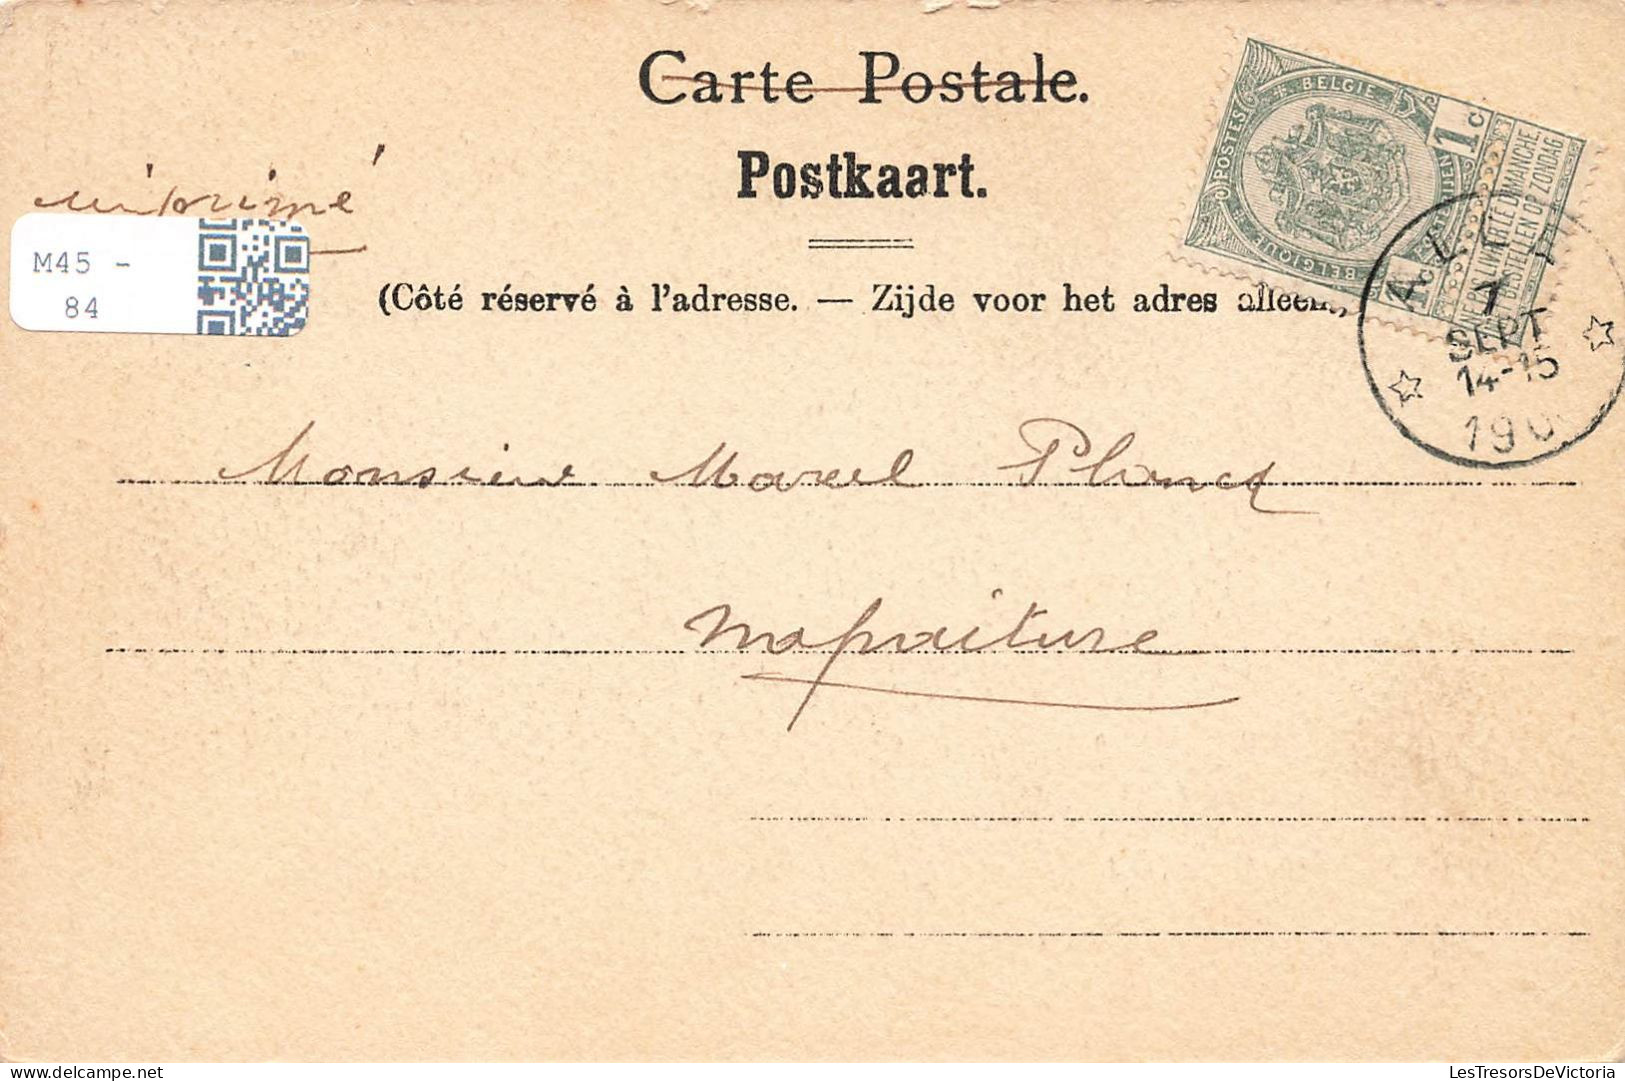 Carte Postale.
Postkaart.
imprimé
M45 -
84
(Côté réservé à l'adresse. — Zijde voor het adres alleen,
POSTES BELGIE
BELGIQUE
1c
1c
NE PAS LIVRER LE DIMANCHE.
NIET BESTELLEN OP ZONDAG
7
SEPT
14-15
190
Monsieur Marcel Plancq
LesTresorsDeVictoria